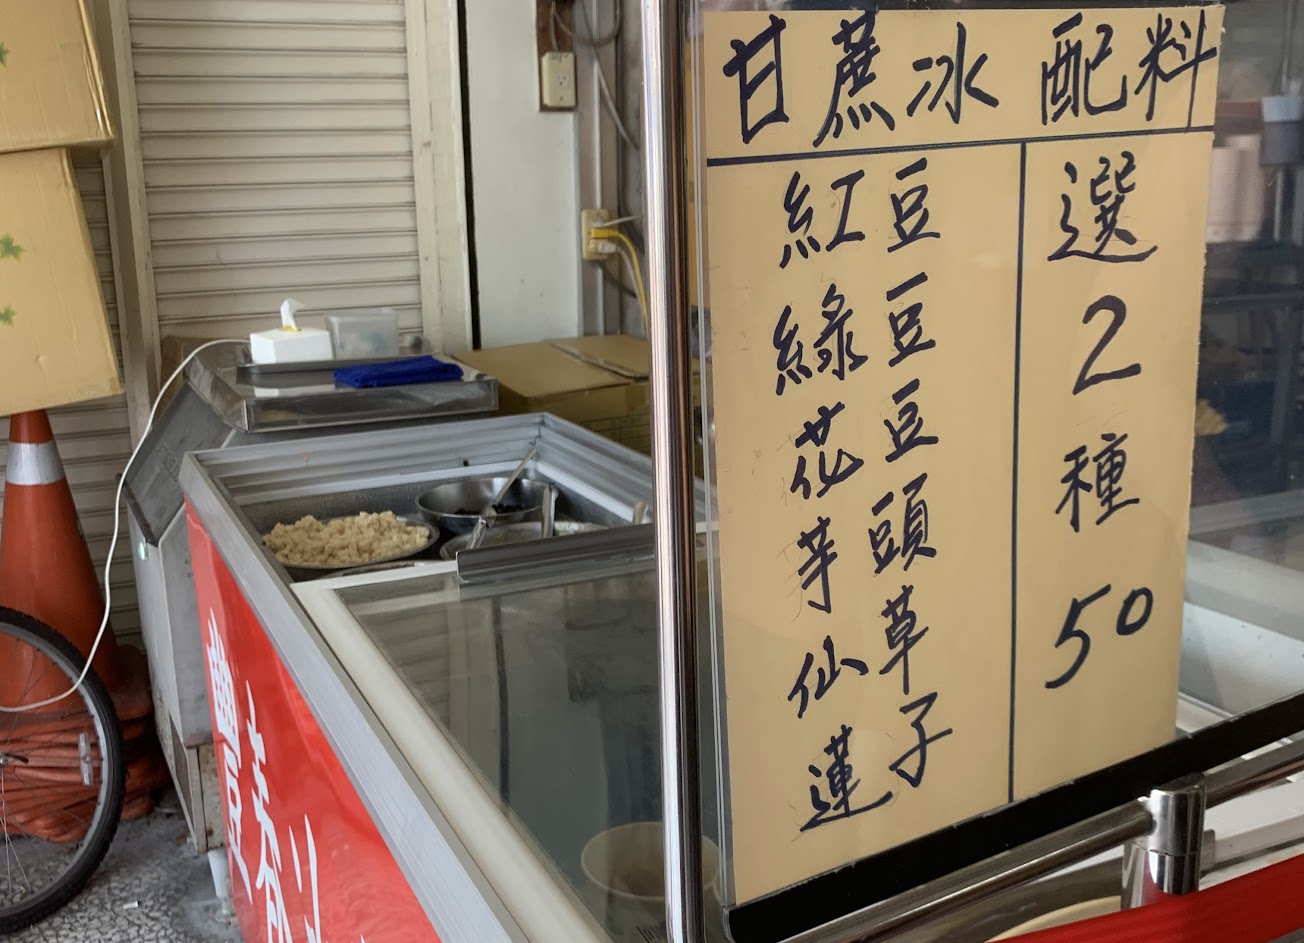 甘蔗冰 配料
紅豆
綠豆
花豆
芋頭
仙草
蓮子
選2種50
豐春冰